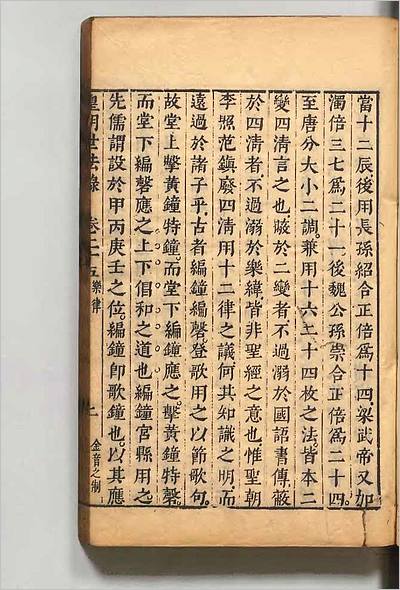 當十二辰後用長孫紹合正倍爲十四梁武帝又加
濁倍三七爲二十一後魏公孫崇合正倍爲二十四。
至唐分大小二調兼用十六二十四枚之法皆本二
變四清言之也蔽於二變者不過溺於國語書傳蔽
於四清者不過溺於樂緯皆非聖經之意也惟聖朝
李照范鎮廢四清用十二律之議何其知識之明而
遠過於諸子乎古者編鐘編磬登歌用之以節歌句。
故堂上擊黃鐘特鐘。而堂下編鐘應之。擊黃鐘特磬。
而堂下編磬應之上下倡和之道也編鐘宮縣用之
先儒謂設於甲丙庚壬之位。編鐘卽歌鐘也。以其應
皇明世法錄 卷二十五 樂律 金音之制